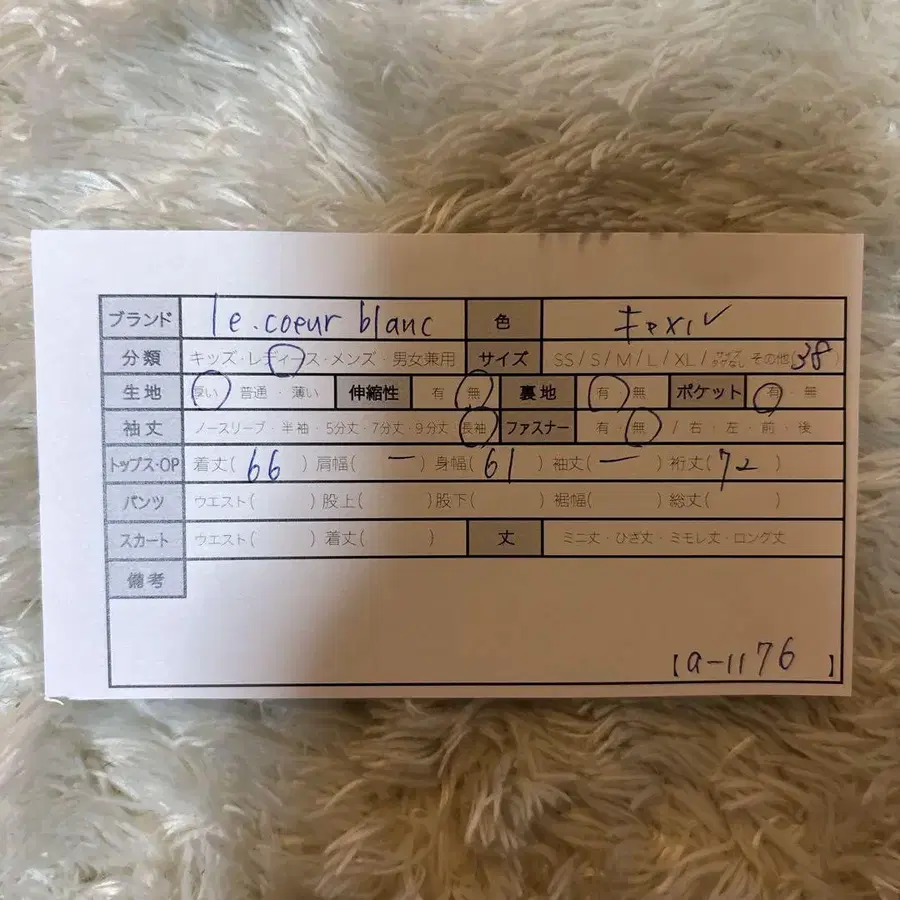 ブランド le.coeur blanc 色 キャメル
分類 キッズ・レディース・メンズ・男女兼用 サイズ SS/S/M/L/XL/サイズタグなし その他(38)
生地 厚い・普通・薄い 伸縮性 有・無 裏地 有・無 ポケット 有・無
袖丈 ノースリーブ・半袖・5分丈・7分丈・9分丈・長袖 ファスナー 有・無 / 右・左・前・後
トップス・OP 着丈(66) 肩幅(ー) 身幅(61) 袖丈(ー) 裄丈(72)
パンツ ウエスト( ) 股上( ) 股下( ) 裾幅( ) 総丈( )
スカート ウエスト( ) 着丈( ) 丈 ミニ丈・ひざ丈・ミモレ丈・ロング丈
備考
【a-1176】